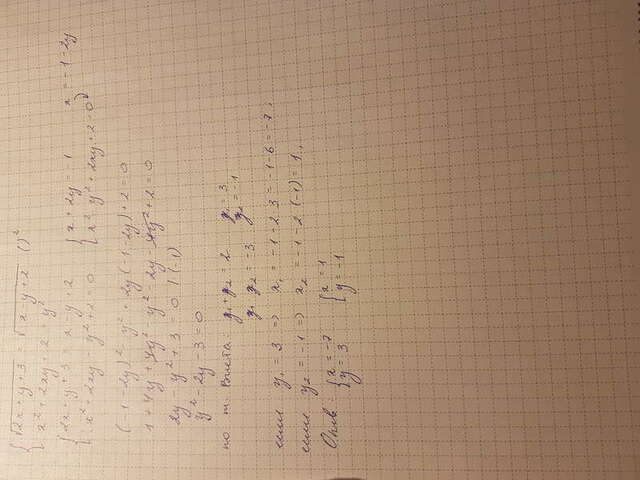 { √2x + y + 3 = √x - y + 2 ()²
x² + 2xy + 2 = y²
{ 2x + y + 3 = x - y + 2 { x + 2y = -1 x = -1 - 2y
x² + 2xy - y² + 2 = 0 { x² - y² + 2xy + 2 = 0
(-1 - 2y)² - y² + 2y(-1 - 2y) + 2 = 0
1 + 4y + 4y² - y² - 2y - 4y² + 2 = 0
2y - y² + 3 = 0 | (-1)
y² - 2y - 3 = 0
по т. Виета y₁ + y₂ = 2 y₁ = 3
y₁ y₂ = -3 y₂ = -1
если y₁ = 3 => x₁ = -1 - 2·3 = -1 - 6 = -7;
если y₂ = -1 => x₂ = -1 - 2·(-1) = 1;
{ x = -7 { x = 1
y = 3 y = -1